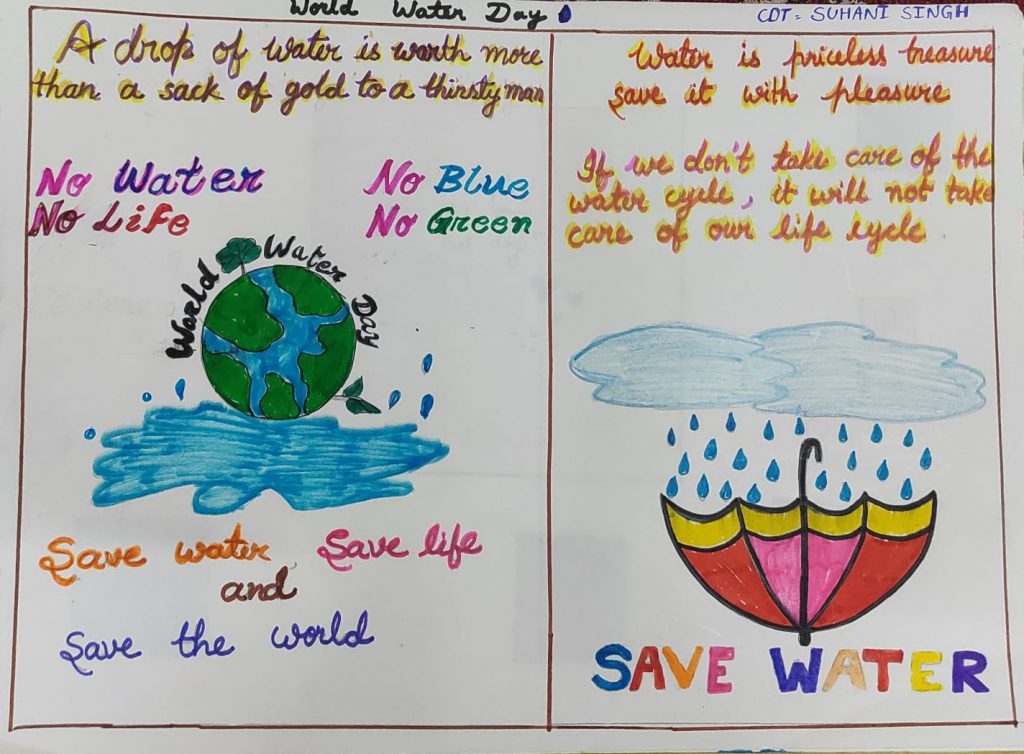 World Water Day
CDT = SUHANI SINGH
A drop of water is warth more
than a sack of gold to a thirsty man
No Water
No Life
No Blue
No Green
World Water Day
Save water Save life
and
Save the world
Water is priceless treasure
save it with pleasure
If we don't take care of the
water cycle, it will not take
care of our life cycle
SAVE WATER